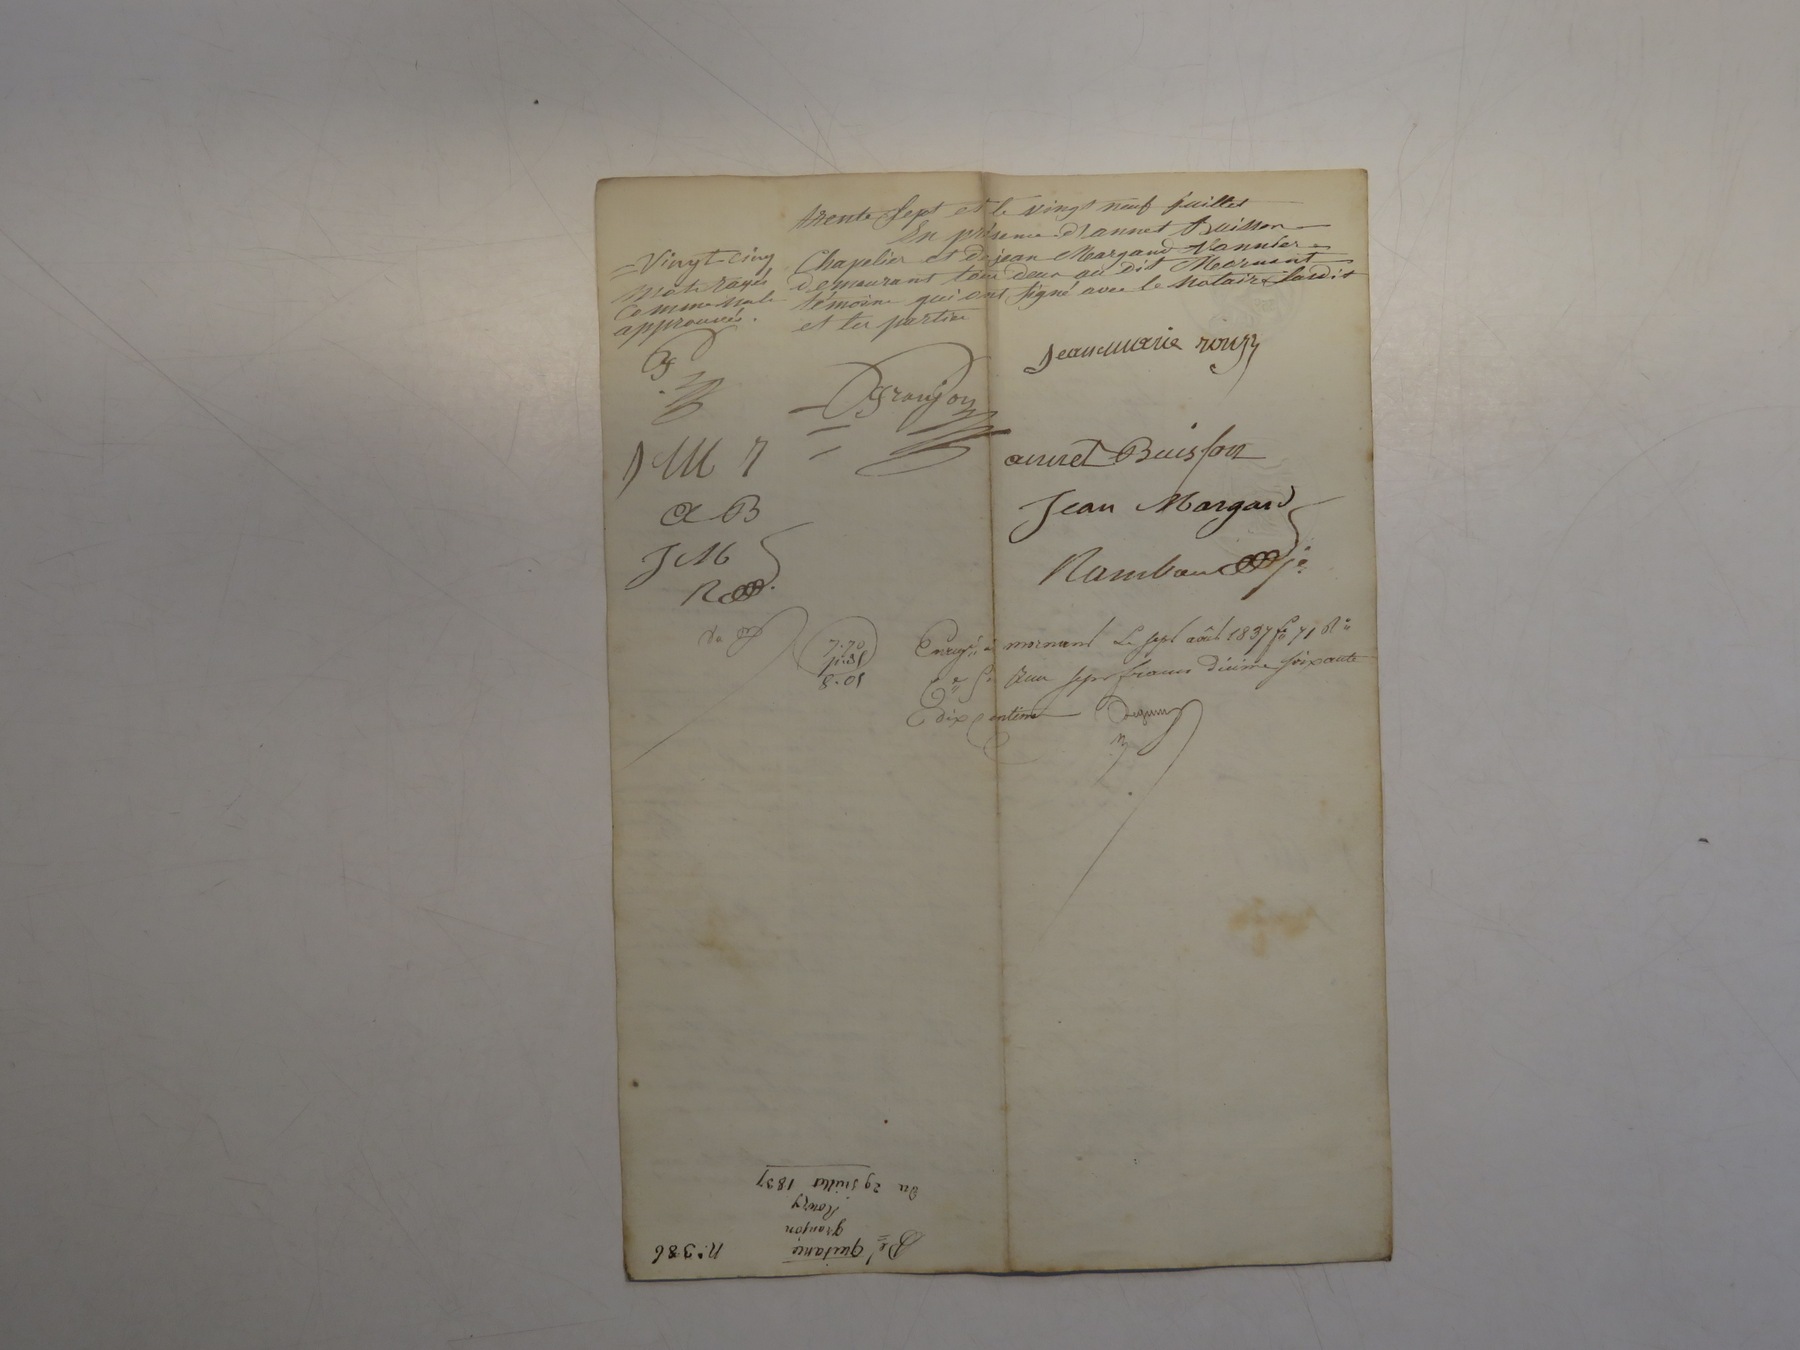 trente Sept et le vingt neuf juillet
En présence d'annet Buisson
Chapelier et de jean Margand Vannier
demeurant tous deux au dit Mornant
témoins qui ont signé avec le Notaire Susdit
et les parties
= Vingt-cinq
mots rayés
comme nuls
approuvés.
G
Jeanmarie rouzy
Granjon
JM r
annet Buisson
A B
Jean Margand
J M
Rambaud je
R
7.70
8.01
Enregé à mornant Le sept août 1837 fo 71 Ro
Ce 5e Reçu sept francs décime soixante
dix centimes
N° 386
Del quitance
granjon
Rouzy
Du 29 juillet 1837